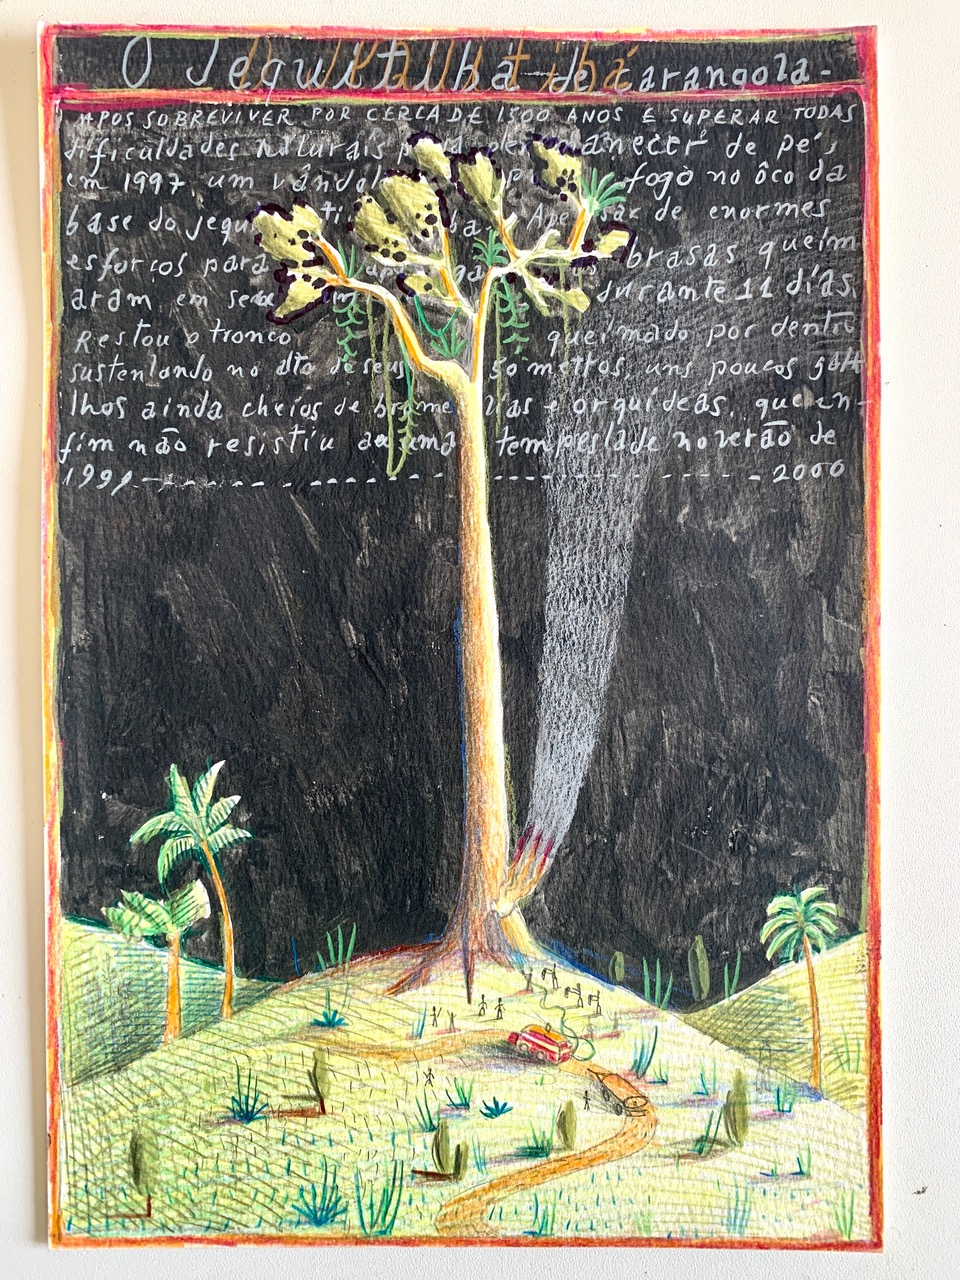 O Jequitibá de Carangola-
APOS SOBREVIVER POR CERCA DE 1500 ANOS E SUPERAR TODAS
dificuldades naturais para permanecer de pé,
em 1997, um vândalo fogo no ôco da
base do jequitibá. Apesar de enormes
esforços para brasas queim
aram em seu durante 11 días.
Restou o tronco queimado por dentro
sustentando no alto de seus 50 mettros, uns poucos galh
lhos ainda cheios de bromelias e orquídeas, que en-
fim não resistiu a uma tempestade no verão de
2000